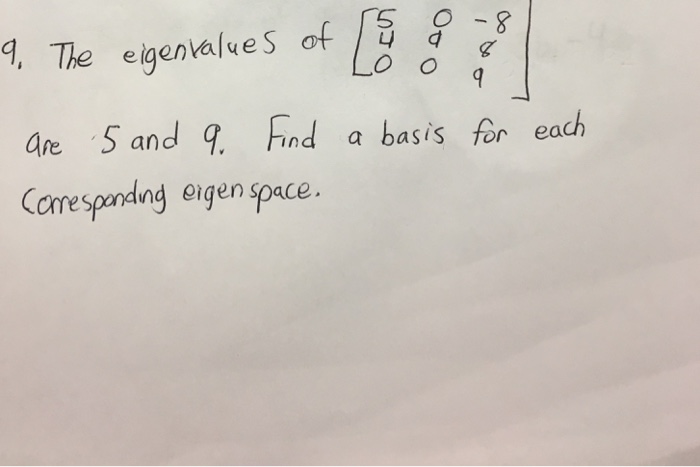 9. The eigenvalues of [5 0 -8
4 9 8
0 0 9]
are 5 and 9. Find a basis for each
Corresponding eigenspace.